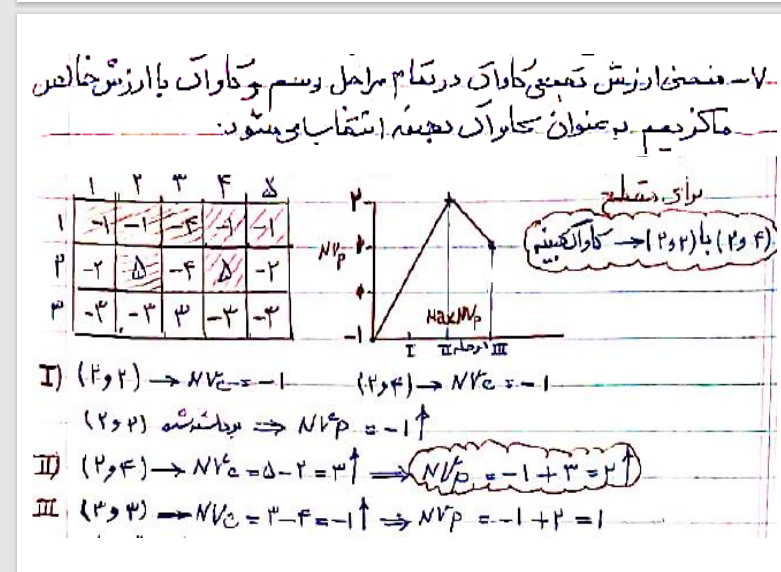 ۷- منحنی ارزش تجمعی کاواک در تمام مراحل رسم و کاواک با ارزش خالص
ماکزیمم به عنوان کاواک بهینه انتخاب می‌شود.
۱ ۲ ۳ ۴ ۵
۱ -۱ -۱ -۴ -۱ -۱
۲ -۲ ۵ -۴ ۵ -۲
۳ -۳ -۳ ۳ -۳ -۳
۲
NVp
-۱
Max NVp
I II مرحله III
برای مقطع
(۲و۴) یا (۲و۲) → کاواک بهینه
I) (۲و۲) → NVc = -۱ (۲و۴) → NVc = -۱
(۲و۲) برداشته شده ⇒ NVp = -۱ ↑
II) (۲و۴) → NVc = ۵-۲ = ۳ ↑ ⇒ NVp = -۱+۳ = ۲ ↑
III (۳و۳) → NVc = ۳-۴ = -۱ ↑ ⇒ NVp = -۱+۲ = ۱